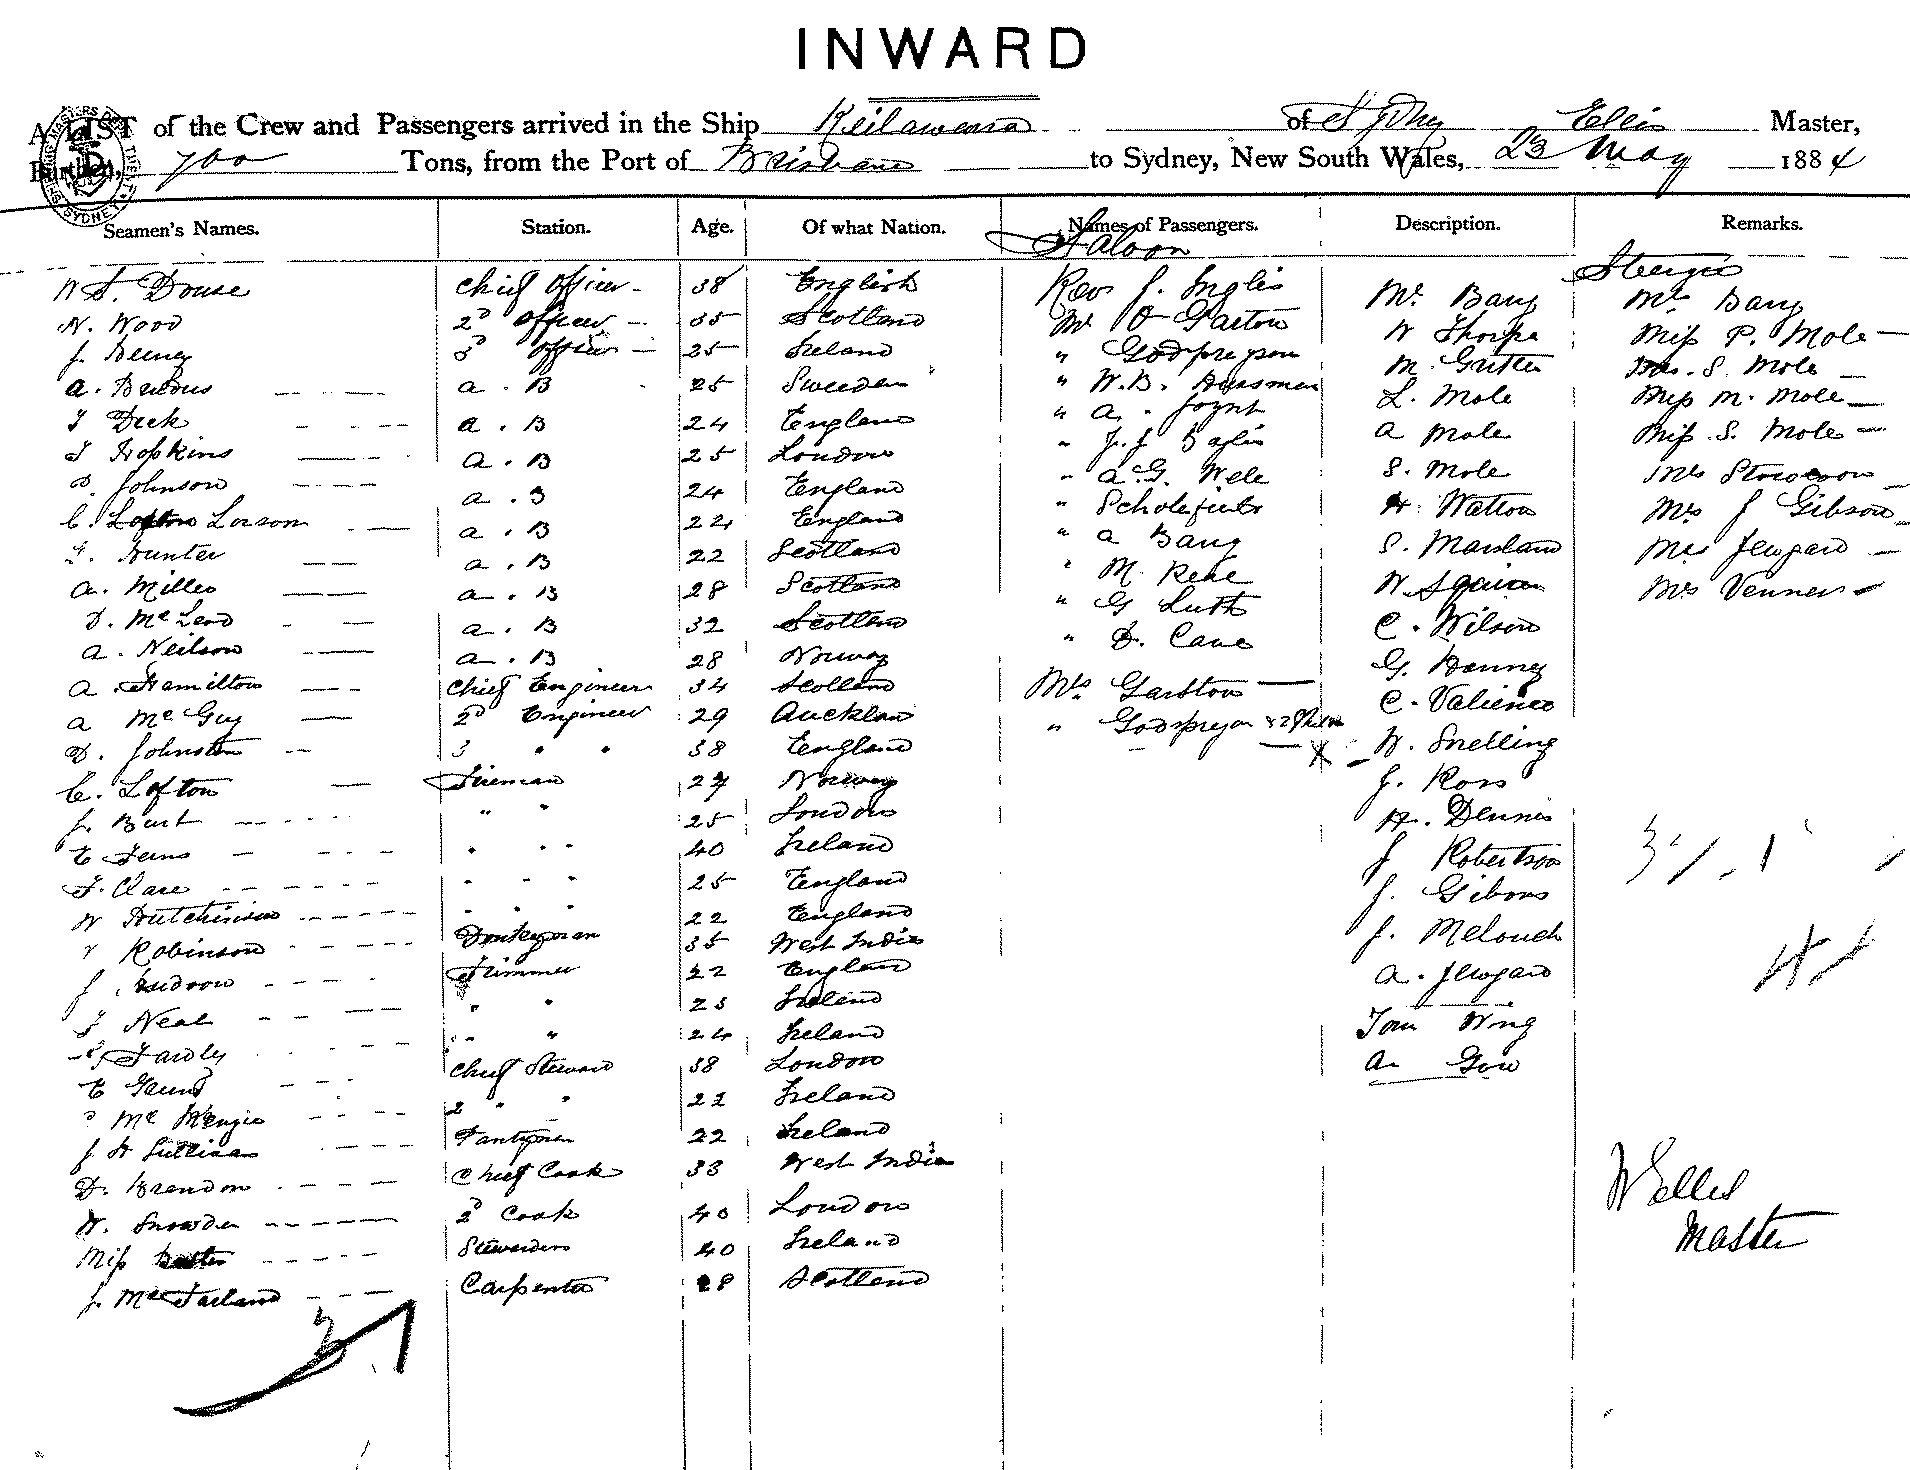 INWARD
A LIST of the Crew and Passengers arrived in the Ship Keilawarra of Sydney Ellis Master,
Burthen, 700 Tons, from the Port of Brisbane to Sydney, New South Wales, 23 May 1884
Seamen's Names. Station. Age. Of what Nation. Names of Passengers. Description. Remarks.
Saloon Steerage
W S. Douse Chief Officer 38 English Rev J. Inglis Mr Bang Mrs Bang
N. Wood 2D Officer 35 Scotland Mr O Garton W Thorpe Miss P. Mole
J. 3D Officer 25 Ireland " M. L. Mole Mrs. S. Mole
A. A.B 25 Sweden " W.B. L. Mole Miss M. Mole
T Dick A.B 24 England " A. Joynt A Mole Miss S. Mole
T Hopkins A.B 25 London " J. J S. Mole Mrs
Johnson A.B 24 England " A.G. H. Watton Mrs J Gibson
C. Lorson A.B 22 England " S. Marsland Mrs Jewgard
Hunter A.B 22 Scotland " A Bang W. Mrs Venner
A. Miller A.B 28 Scotland " M. C. Wilson
D. McLeod A.B 32 Scotland " G G.
A. Neilson A.B 28 Norway " D. Cave C.
A. Hamilton Chief Engineer 34 Scotland Mrs W. Snelling
A McGuy 2D Engineer 29 Aucklan " J. Ross
D. Johnston 3 " " 38 England H. Dennis
C. Lofton Fireman 27 Norway J Robertson
J. Burt " " 25 London J. Gibons
E Ferns " " 40 Ireland J.
F. Clare " " 25 England A. Jewgard
W Hutchinson " " 22 England Tom Wing
Robinson Donkeyman 35 West Indies Ah Gow
J. Trimmer 22 England
J Neal " " 23 Ireland
" " 24 Ireland
E Chief Steward 38 London
McKenzie 2 " " 22 Ireland
J H Sullivan Pantryman 22 Ireland
D. Brandon Chief Cook 33 West Indies
W. Snowden 2D Cook 40 London
Miss Stewardess 40 Ireland
J. McFarland Carpenter 28 Scotland
W Ellis
Master